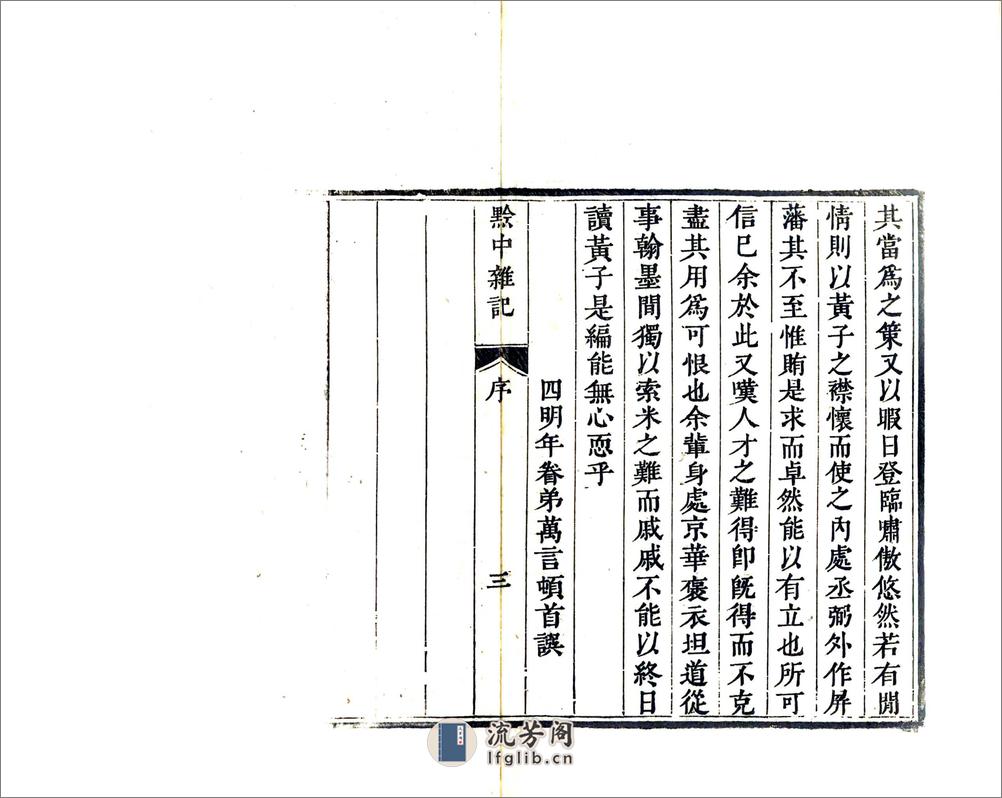 其當爲之策又以暇日登臨嘯傲悠然若有閒
情則以黃子之襟懷而使之內處丞弼外作屏
藩其不至惟賄是求而卓然能以有立也所可
信已余於此又嘆人才之難得卽旣得而不克
盡其用爲可恨也余輩身處京華褒衣坦道從
事翰墨間獨以索米之難而戚戚不能以終日
讀黃子是編能無心恧乎
四明年眷弟萬言頓首譔
黔中雜記 序 三
流芳阁
lfglib.cn